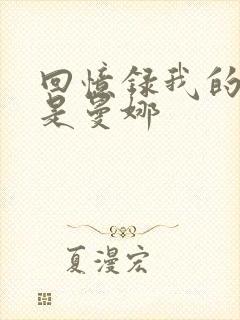 回憶録我的
是曼娜
夏漫宏